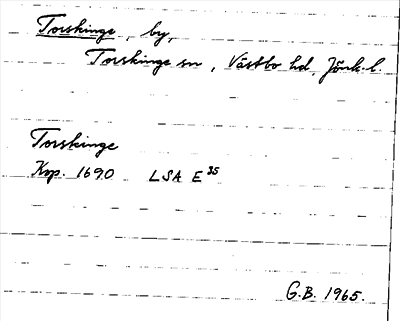 Torskinge, by,
Torskinge sn, Västbo hd, Jönk. l.
Torskinge
Kop. 1690 LSA E 35
G.B. 1965.